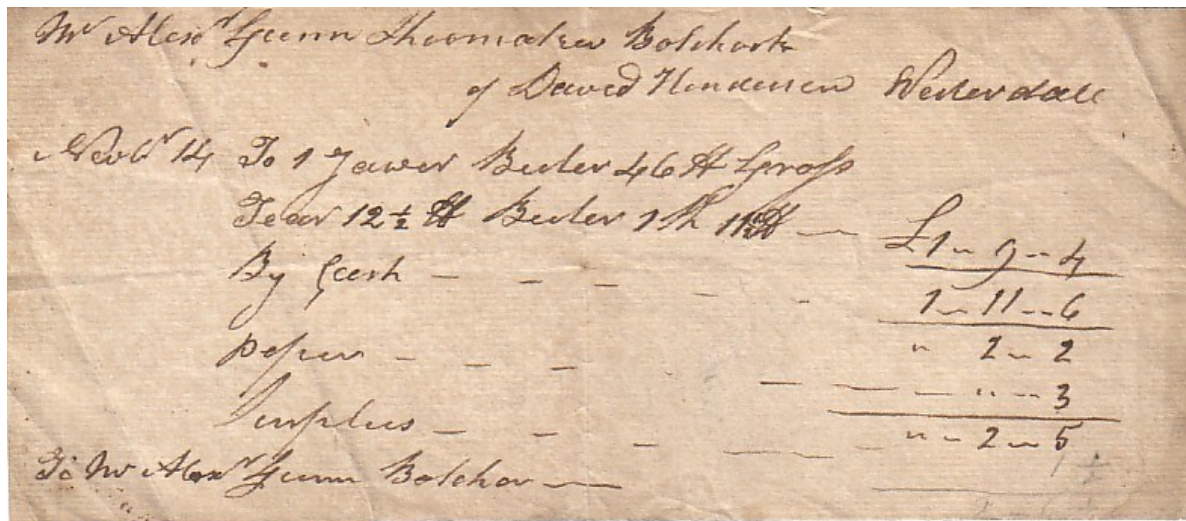 Mr Alexr Gunn Shoomaker Bolchork
of David Henderson Westerdale
Novbr 14 To 1 Jawer Buter 46 ℔ Gross
Tear 12½ ℔ Buter 1 St 11½ ℔ — £1 - 9 - 4
By Cash — — — — - 1 - 11 - 6
" 2 - 2
peper — — — — — — " - 3
Surplus — — — — — " - 2 - 5
To Mr Alexr Gunn Bolchor —